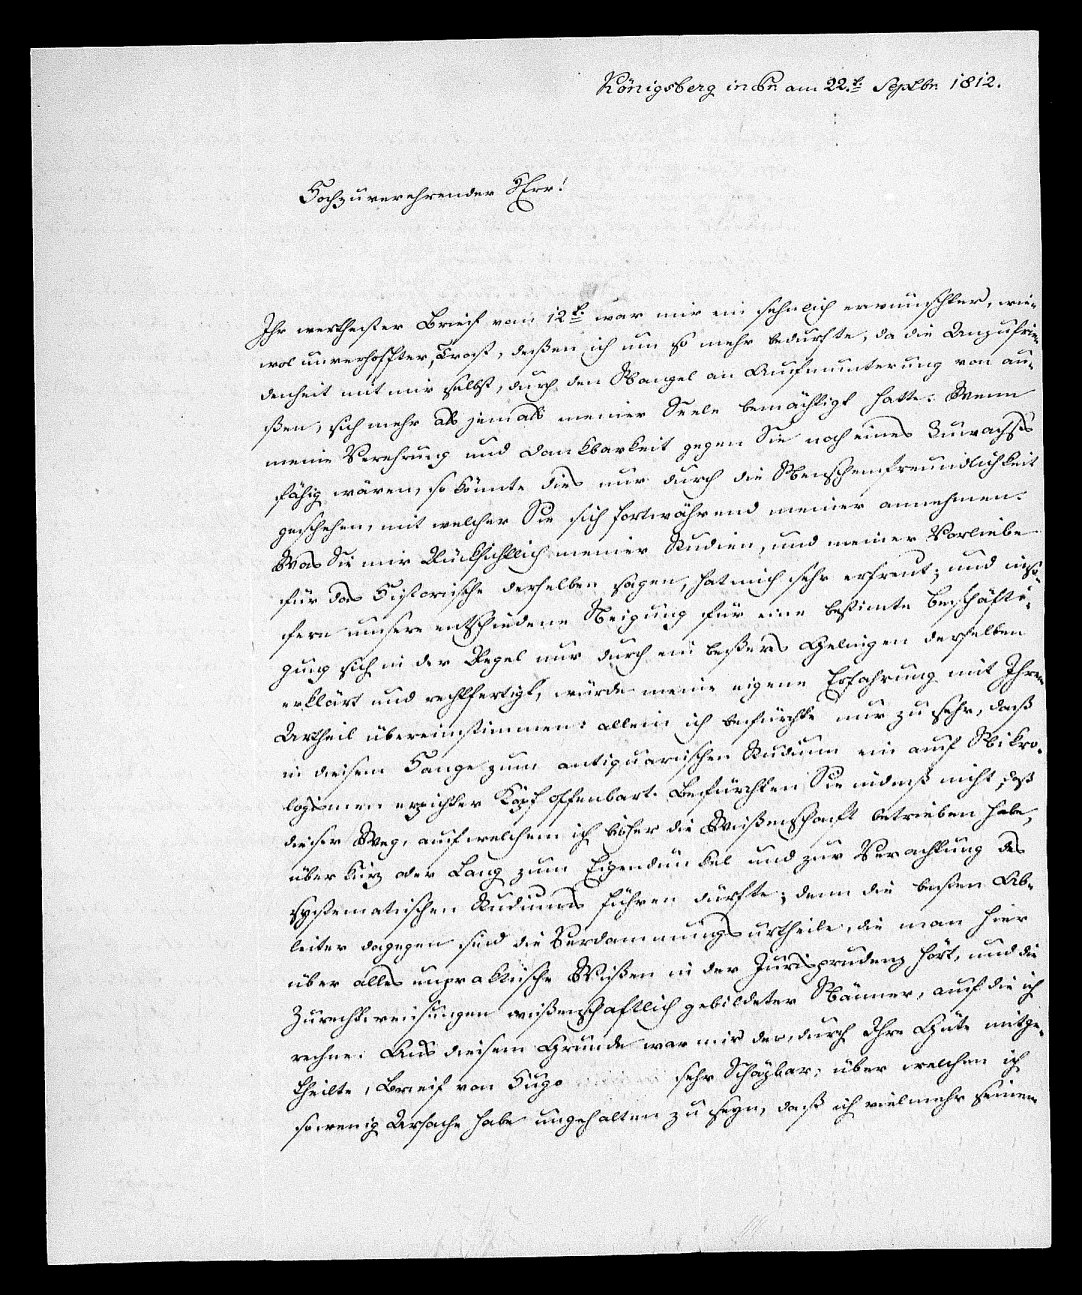 Königsberg in Pr. am 22.t. Septbr. 1812.
Hochzuverehrender Herr!
Ihr werthester Brief vom 12t. war mir ein sehnlich erwünschter, wie-
wol unverhoffter, Trost, dessen ich um so mehr bedurfte, da die Unzufrie-
denheit mit mir selbst, durch den Mangel an Aufmunterung von au-
ßen, sich mehr als jemals meiner Seele bemächtigt hatte. Wenn
meine Verehrung und Dankbarkeit gegen Sie noch eines Zuwachses
fähig wären, so könnte dies nur durch die Menschenfreundlichkeit
geschehen, mit welcher Sie sich fortwährend meiner annehmen.
Was Sie mir Rücksichtlich meiner Studien, und meiner Vorliebe
für das Historische derselben sagen, hat mich sehr erfreut; und inso-
fern unsere entschiedene Neigung für eine bestimte Beschäfti-
gung sich in der Regel nur durch ein beßeres Gelingen derselben
erklärt und rechtfertigt, würde meine eigene Erfahrung mit Ihrem
Urtheil übereinstimmen: allein ich befürchte nur zu sehr, daß
in diesem Hange zum antiquarischen Studium ein auf Mikro-
logismen erpichter Kopf offenbart. Befürchten Sie indeß nicht, daß
dieser Weg, auf welchem ich bisher die Wißenschaft betrieben habe,
über kurz oder lang zum Eigendünkel und zur Verachtung des
systematischen Studiums führen dürfte; denn die besten Ab-
leiter dagegen sind die Verdammungsurtheile, die man hier
über alles unpraktische Wißen in der Jurisprudenz hört, und die
Zurechtweisungen wißenschaftlich gebildeter Männer, auf die ich
rechne. Aus diesem Grunde war mir der, durch Ihre Güte mitge-
theilte, Brief von Hugo sehr schäzbar, über welchen ich
so wenig Ursache habe ungehalten zu seyn, daß ich vielmehr seinen